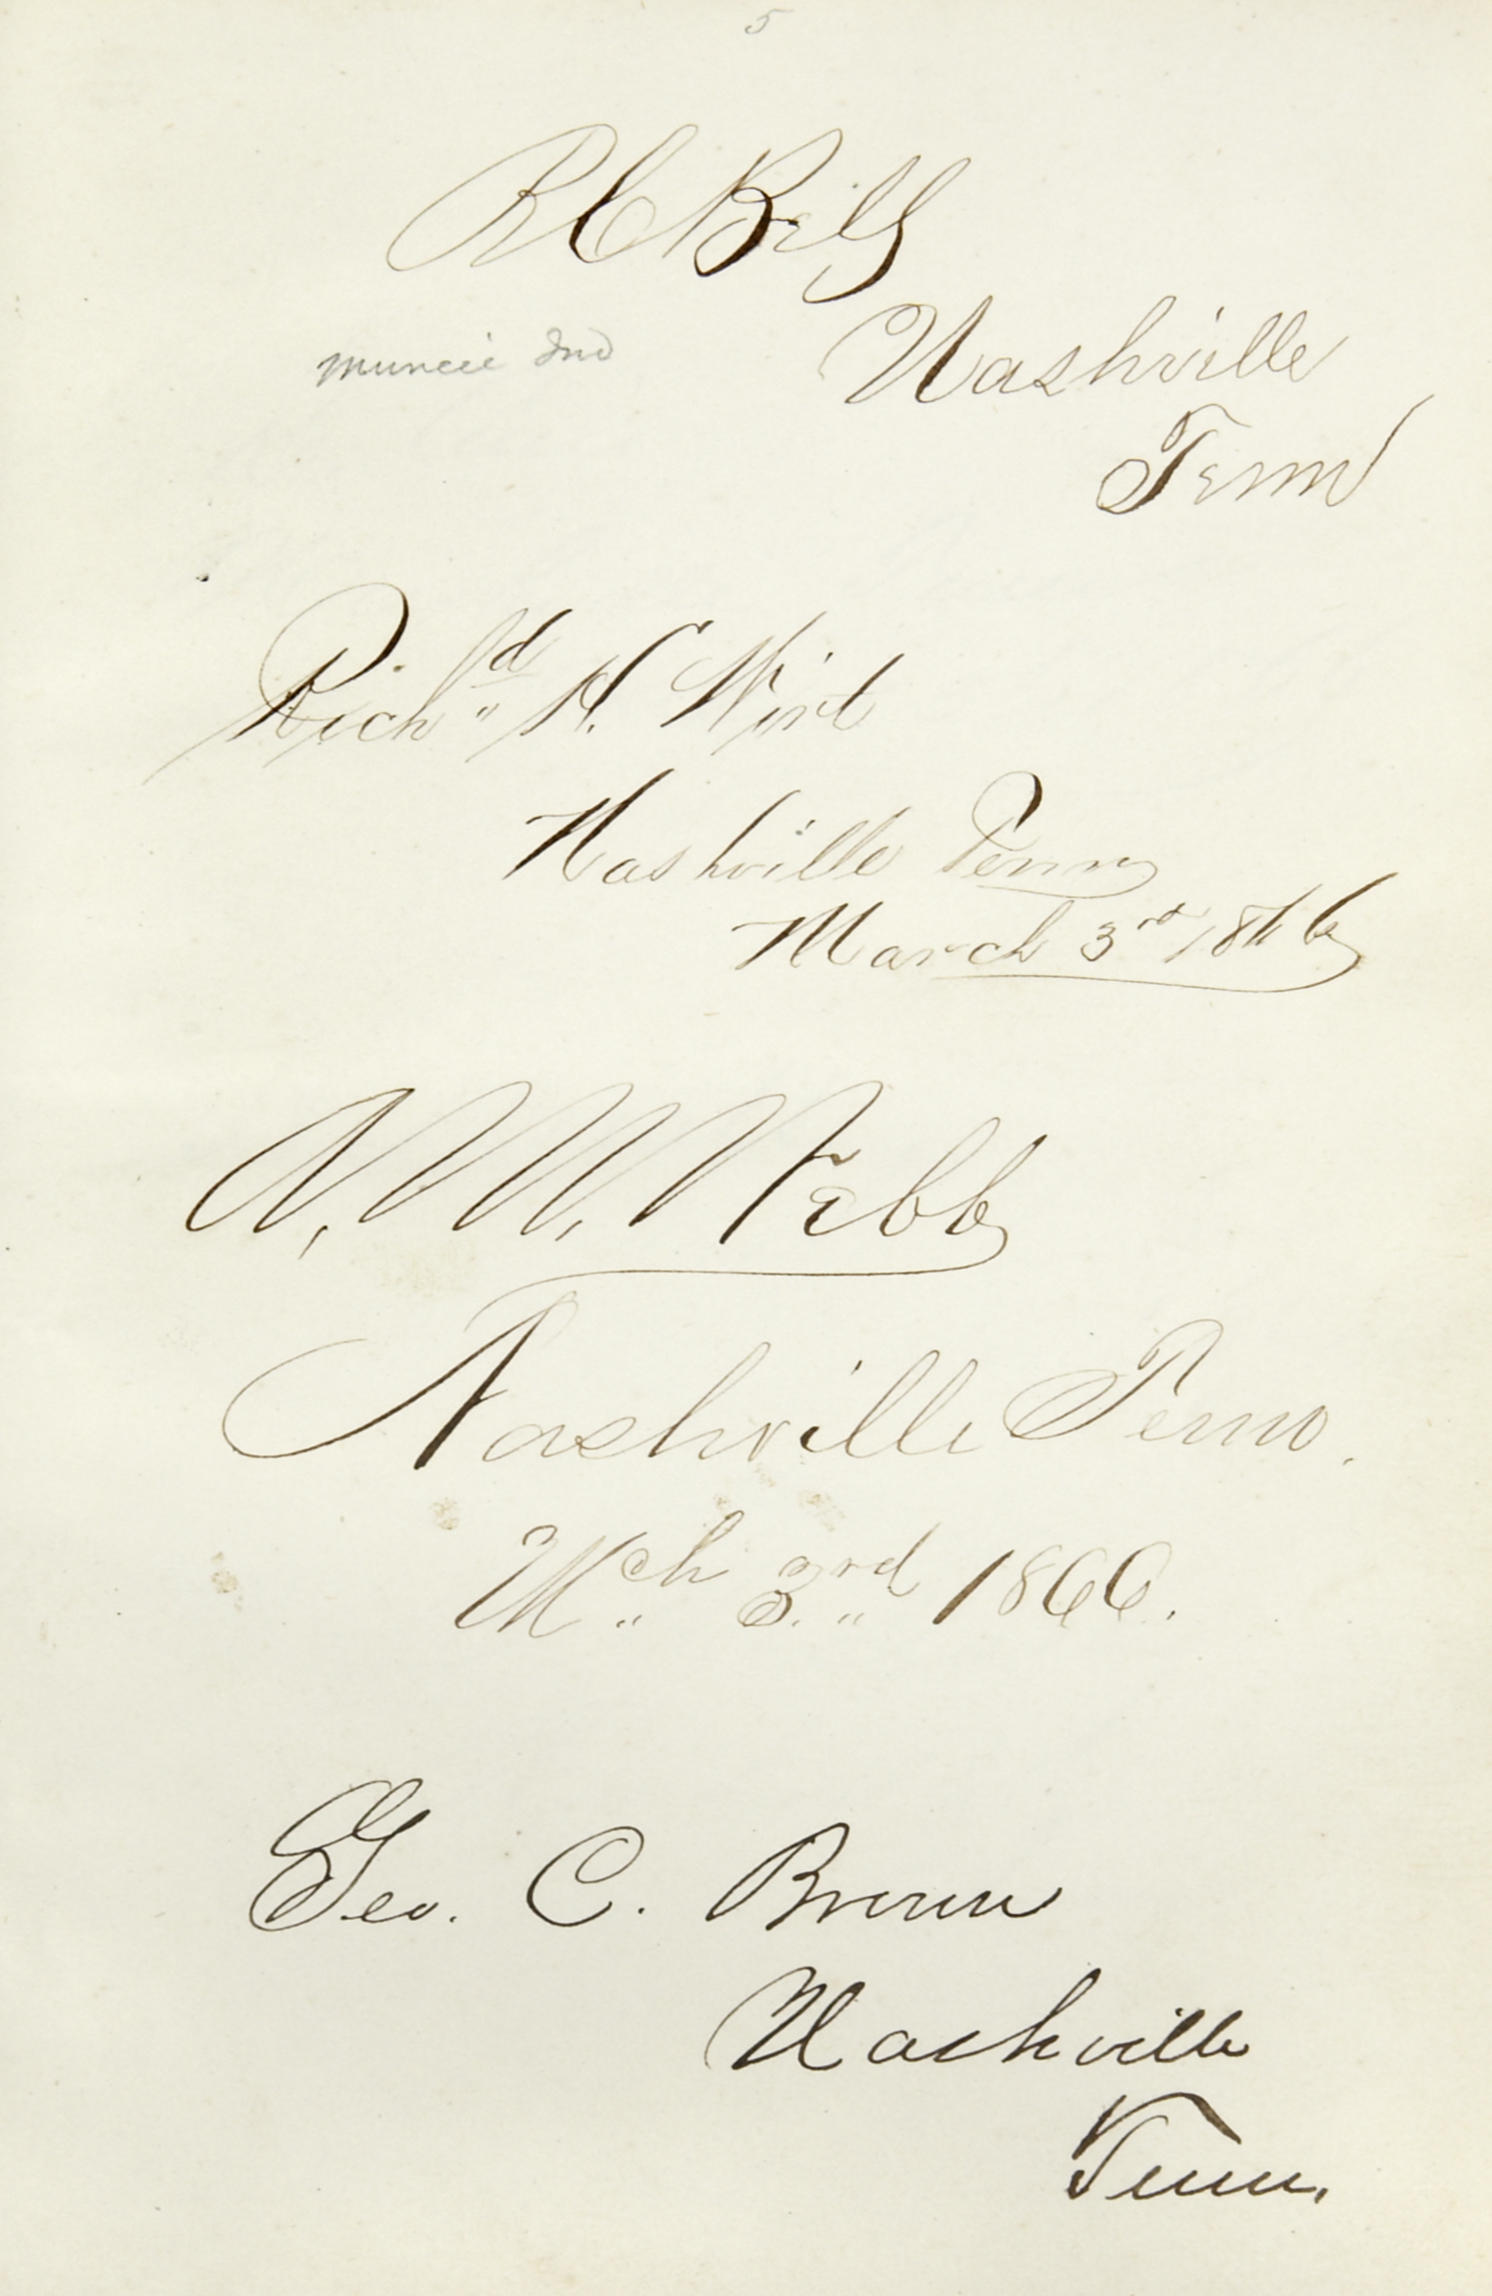 5
R C Bill
Nashville
Muncie Ind
Tenn
Richd H. Wirt
Nashville Tenn
March 3rd 1866
N. M. Webb
Nashville Tenn.
Mch 3rd 1866.
Geo. C. Brown
Nashville
Tenn.